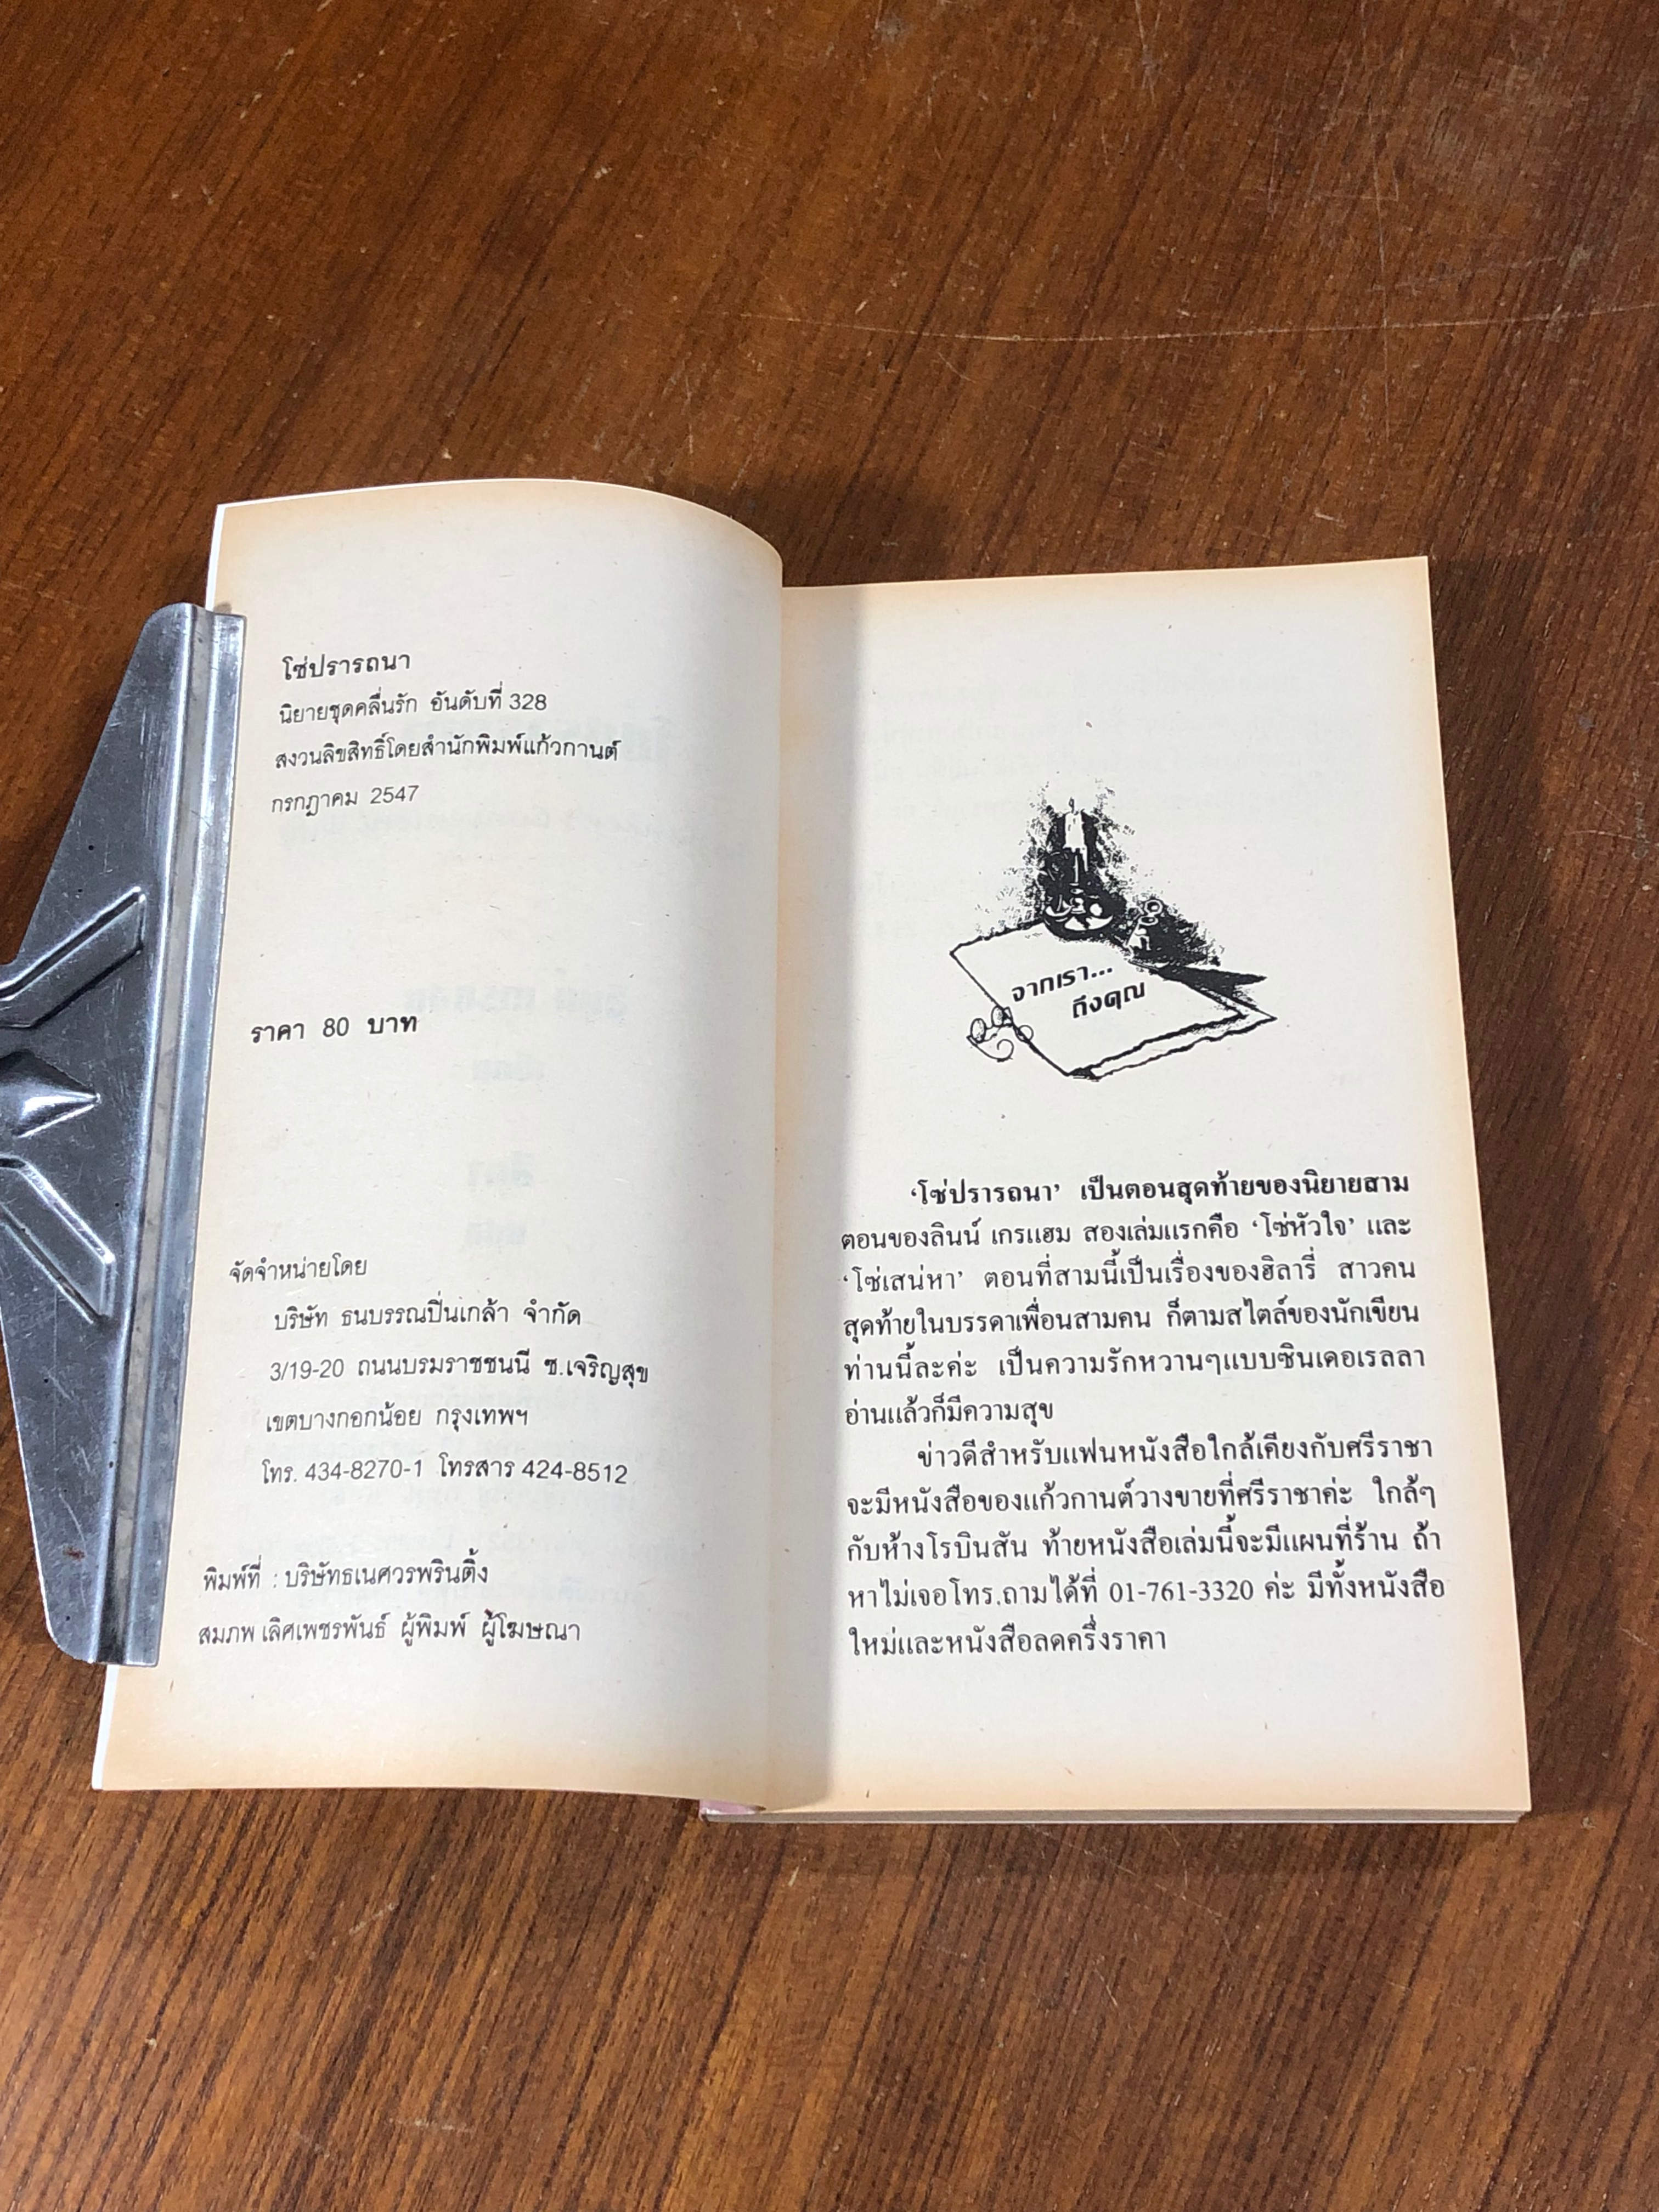 โซ่ปรารถนา
นิยายชุดคลื่นรัก อันดับที่ 328
สงวนลิขสิทธิ์โดยสำนักพิมพ์แก้วกานต์
กรกฎาคม 2547
ราคา 80 บาท
จัดจำหน่ายโดย
บริษัท ธนบรรณปิ่นเกล้า จำกัด
3/19-20 ถนนบรมราชชนนี ซ.เจริญสุข
เขตบางกอกน้อย กรุงเทพฯ
โทร. 434-8270-1 โทรสาร 424-8512
พิมพ์ที่ : บริษัทธเนศวรพรินติ้ง
สมภพ เลิศเพชรพันธ์ ผู้พิมพ์ ผู้โฆษณา
จากเรา...
ถึงคุณ
‘โซ่ปรารถนา’ เป็นตอนสุดท้ายของนิยายสาม
ตอนของลินน์ เกรแฮม สองเล่มแรกคือ ‘โซ่หัวใจ’ และ
‘โซ่เสน่หา’ ตอนที่สามนี้เป็นเรื่องของฮิลารี่ สาวคน
สุดท้ายในบรรดาเพื่อนสามคน ก็ตามสไตล์ของนักเขียน
ท่านนี้ละค่ะ เป็นความรักหวานๆแบบซินเดอเรลลา
อ่านแล้วก็มีความสุข
ข่าวดีสำหรับแฟนหนังสือใกล้เคียงกับศรีราชา
จะมีหนังสือของแก้วกานต์วางขายที่ศรีราชาค่ะ ใกล้ๆ
กับห้างโรบินสัน ท้ายหนังสือเล่มนี้จะมีแผนที่ร้าน ถ้า
หาไม่เจอโทร.ถามได้ที่ 01-761-3320 ค่ะ มีทั้งหนังสือ
ใหม่และหนังสือลดครึ่งราคา